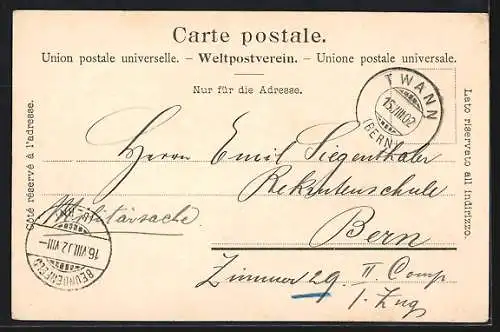 Carte postale.
Union postale universelle. – Weltpostverein. – Unione postale universale.
Nur für die Adresse.
Côté réservé à l'adresse.
Lato riservato all indirizzo.
TWANN
15.VIII.02
(BERN)
Herrn Emil Siegenthaler
Rekrutenschule
Militärsache
Bern
Zimmer 29 II. Comp
1. Zug
BERN
16.VIII.02 VIII–
BEUNDENFELD